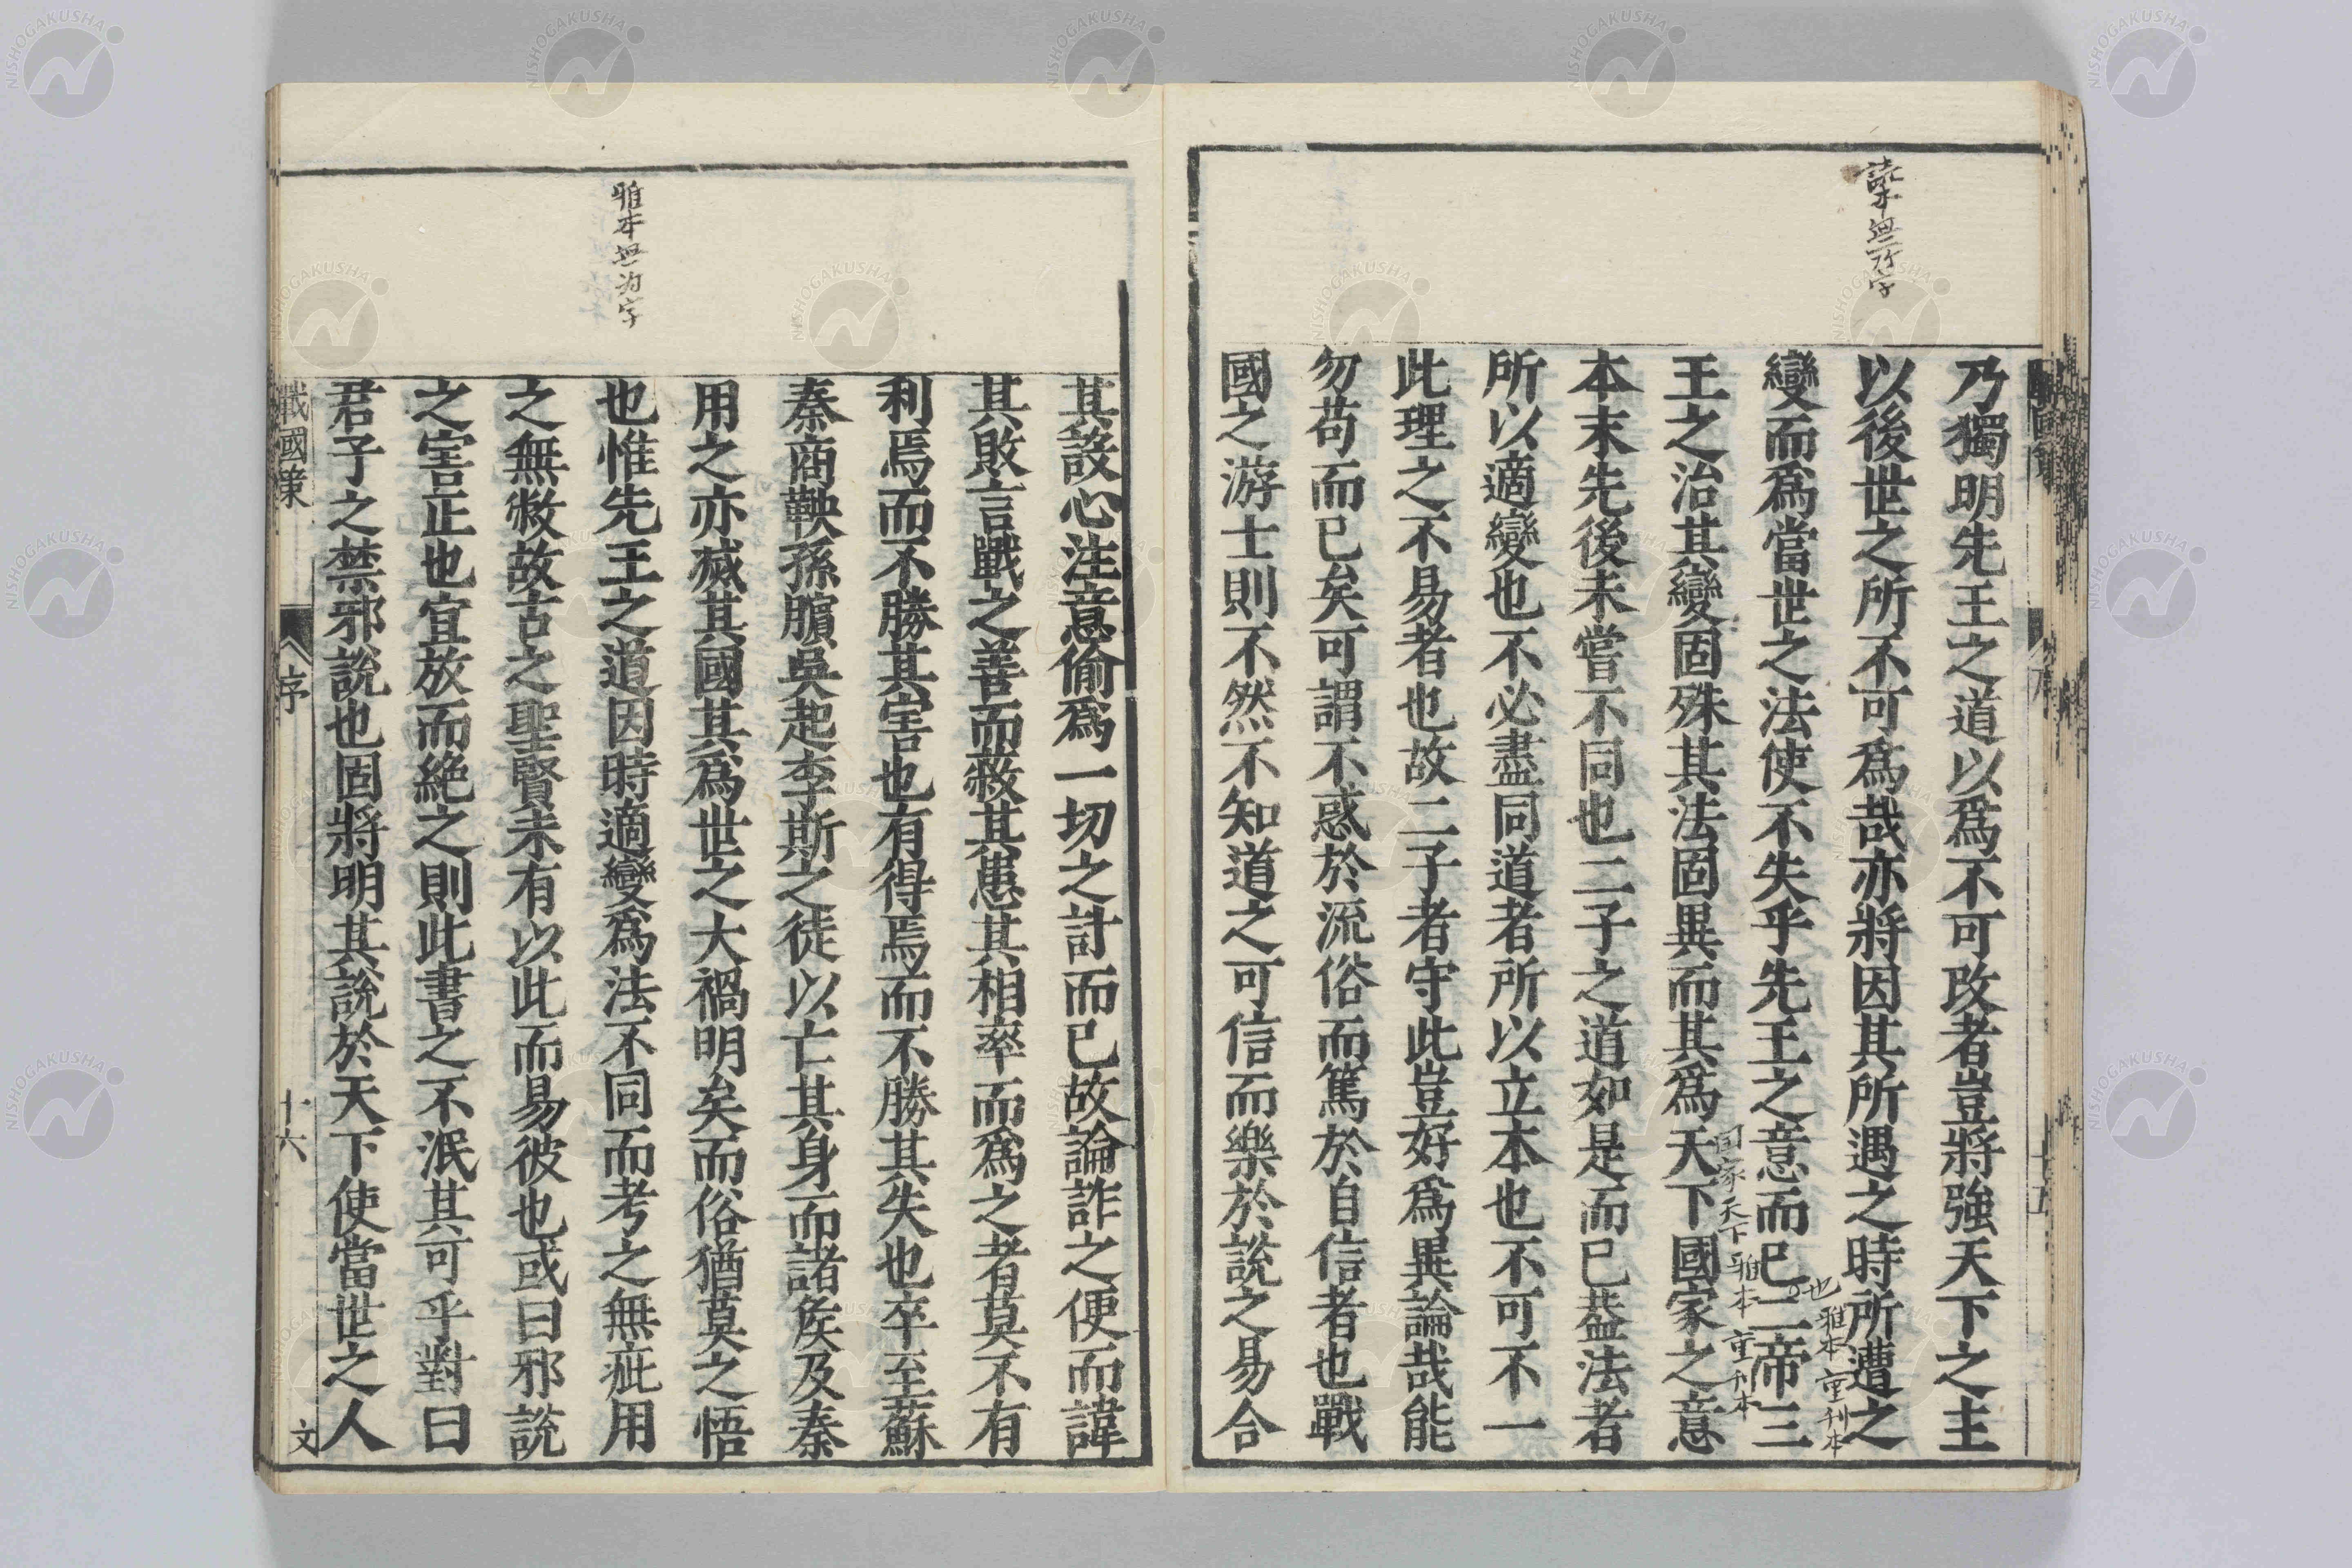 乃獨明先王之道以爲不可改者豈將強天下之主
以後世之所不可爲哉亦將因其所遇之時所遭之
變而爲當世之法使不失乎先王之意而已二帝三
王之治其變固殊其法固異而其爲天下國家之意
本末先後未嘗不同也二子之道如是而已葢法者
所以適變也不必盡同道者所以立本也不可不一
此理之不易者也故二子者守此豈好爲異論哉能
勿苟而已矣可謂不惑於流俗而篤於自信者也戰
國之游士則不然不知道之可信而樂於說之易合
無所字
也雅本重刊本
国家天下雅本重刊本
其設心注意偷爲一切之計而已故論詐之便而諱
其敗言戰之善而蔽其患其相率而爲之者莫不有
利焉而不勝其害也有得焉而不勝其失也卒至蘇
秦商鞅孫臏吳起李斯之徒以亡其身而諸矦及秦
用之亦滅其國其爲世之大禍明矣而俗猶莫之悟
也惟先王之道因時適變爲法不同而考之無疵用
之無敝故古之聖賢未有以此而易彼也或曰邪說
之害正也宜放而絕之則此書之不泯其可乎對曰
君子之禁邪說也固將明其說於天下使當世之人
雅本無为字
戰國策 序 十六 文
NISHOGAKUSHA